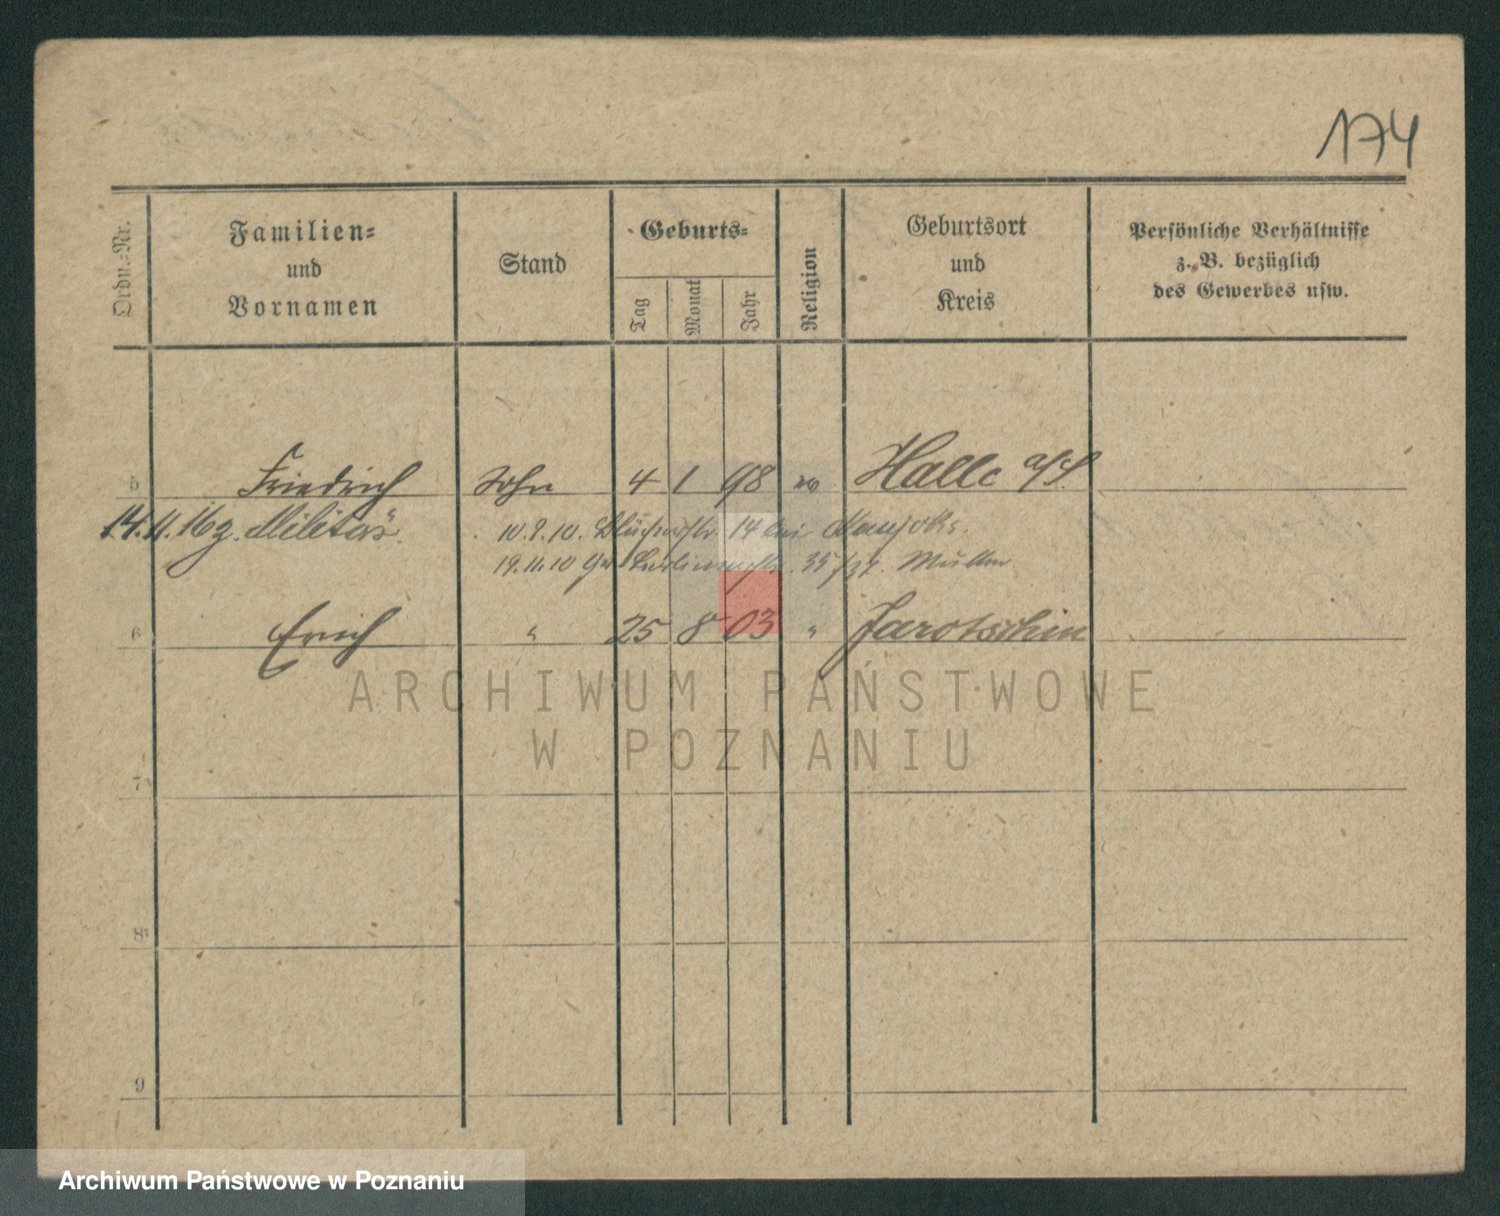 174
Ordn.-Nr.
Familien-
und
Vornamen
Stand
Geburts-
Tag
Monat
Jahr
Religion
Geburtsort
und
Kreis
Persönliche Verhältnisse
z. B. bezüglich
des Gewerbes usw.
5 Friedrich Sohn 4 1 98 ev Halle a/S.
14.11.16 z. Militär. 10.9.10. Blücherstr. 14 bei
19.11.10 Gr. Berlinerstr. 35 / zg. Müller
6 Erich " 25 8 03 " Jarotschin
ARCHIWUM PAŃSTWOWE
W POZNANIU
7
8
9
Archiwum Państwowe w Poznaniu